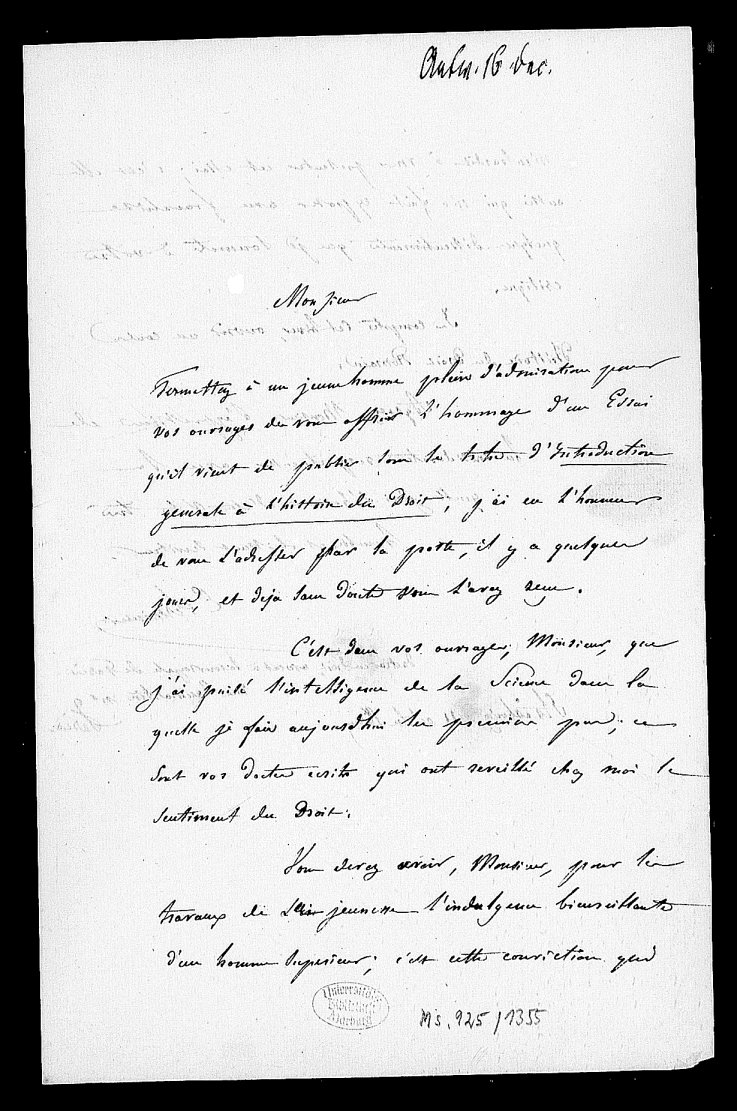 Antw. 16 Dec.
Monsieur
Permettez à un jeune homme plein d'admiration pour
vos ouvrages de vous offrir l'hommage d'un Essai
qu'il vient de publier sous le titre d'Introduction
generale à l'histoire du Droit, j'ai eu l'honneur
de vous l'adresser par la poste, il y a quelques
jours, et deja sans doute vous l'avez reçu.
C'est dans vos ouvrages, Monsieur, que
j'ai puisé l'intelligence de la Science dans la
quelle je fais aujourdhui les premiers pas; ce
sont vos doctes ecrits qui ont reveillé chez moi le
sentiment du Droit.
Vous devez avoir, Monsieur, pour les
travaux de la jeunesse l'indulgence bienveillante
d'un homme superieur; c'est cette conviction qui
Universitäts
Bibliothek
Marburg
Ms. 925/1355